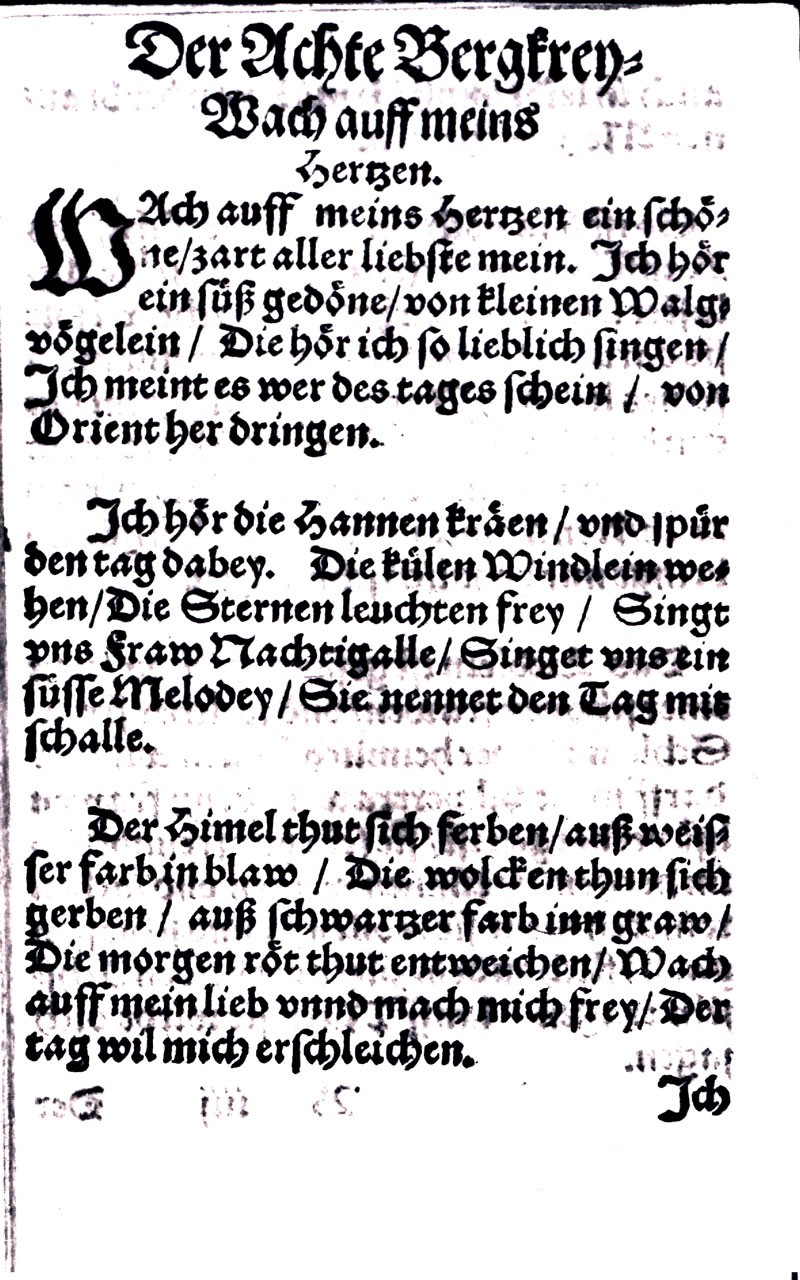 Der Achte Bergkrey⸗
Wach auff meins
Hertzen.
WAch auff meins Hertzen ein schö⸗
ne/zart aller liebste mein. Ich hör
ein süß gedöne/von kleinen Walg⸗
vögelein / Die hör ich so lieblich singen /
Ich meint es wer des tages schein / von
Orient her dringen.
Ich hör die Hannen kräen / vnd spür
den tag dabey. Die külen Windlein we⸗
hen/Die Sternen leuchten frey / Singt
vns Fraw Nachtigalle/ Singet vns ein
süsse Melodey / Sie nennet den Tag mit
schalle.
Der Himel thut sich ferben/auß weis⸗
ser farb in blaw / Die wolcken thun sich
gerben / auß schwartzer farb inn graw /
Die morgen röt thut entweichen/ Wach
auff mein lieb vnnd mach mich frey/ Der
tag wil mich erschleichen.
Ich